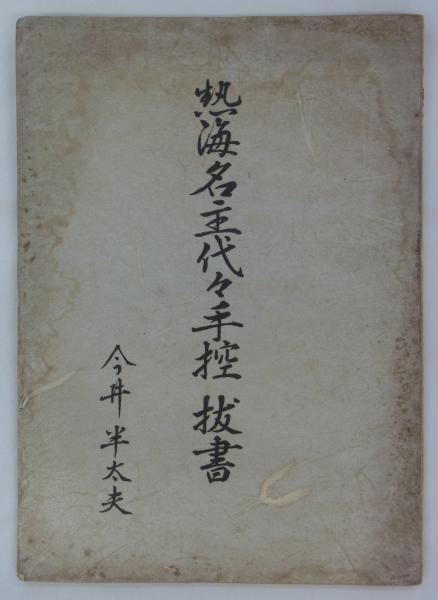 熱海名主代々手控 抜書
今井半太夫